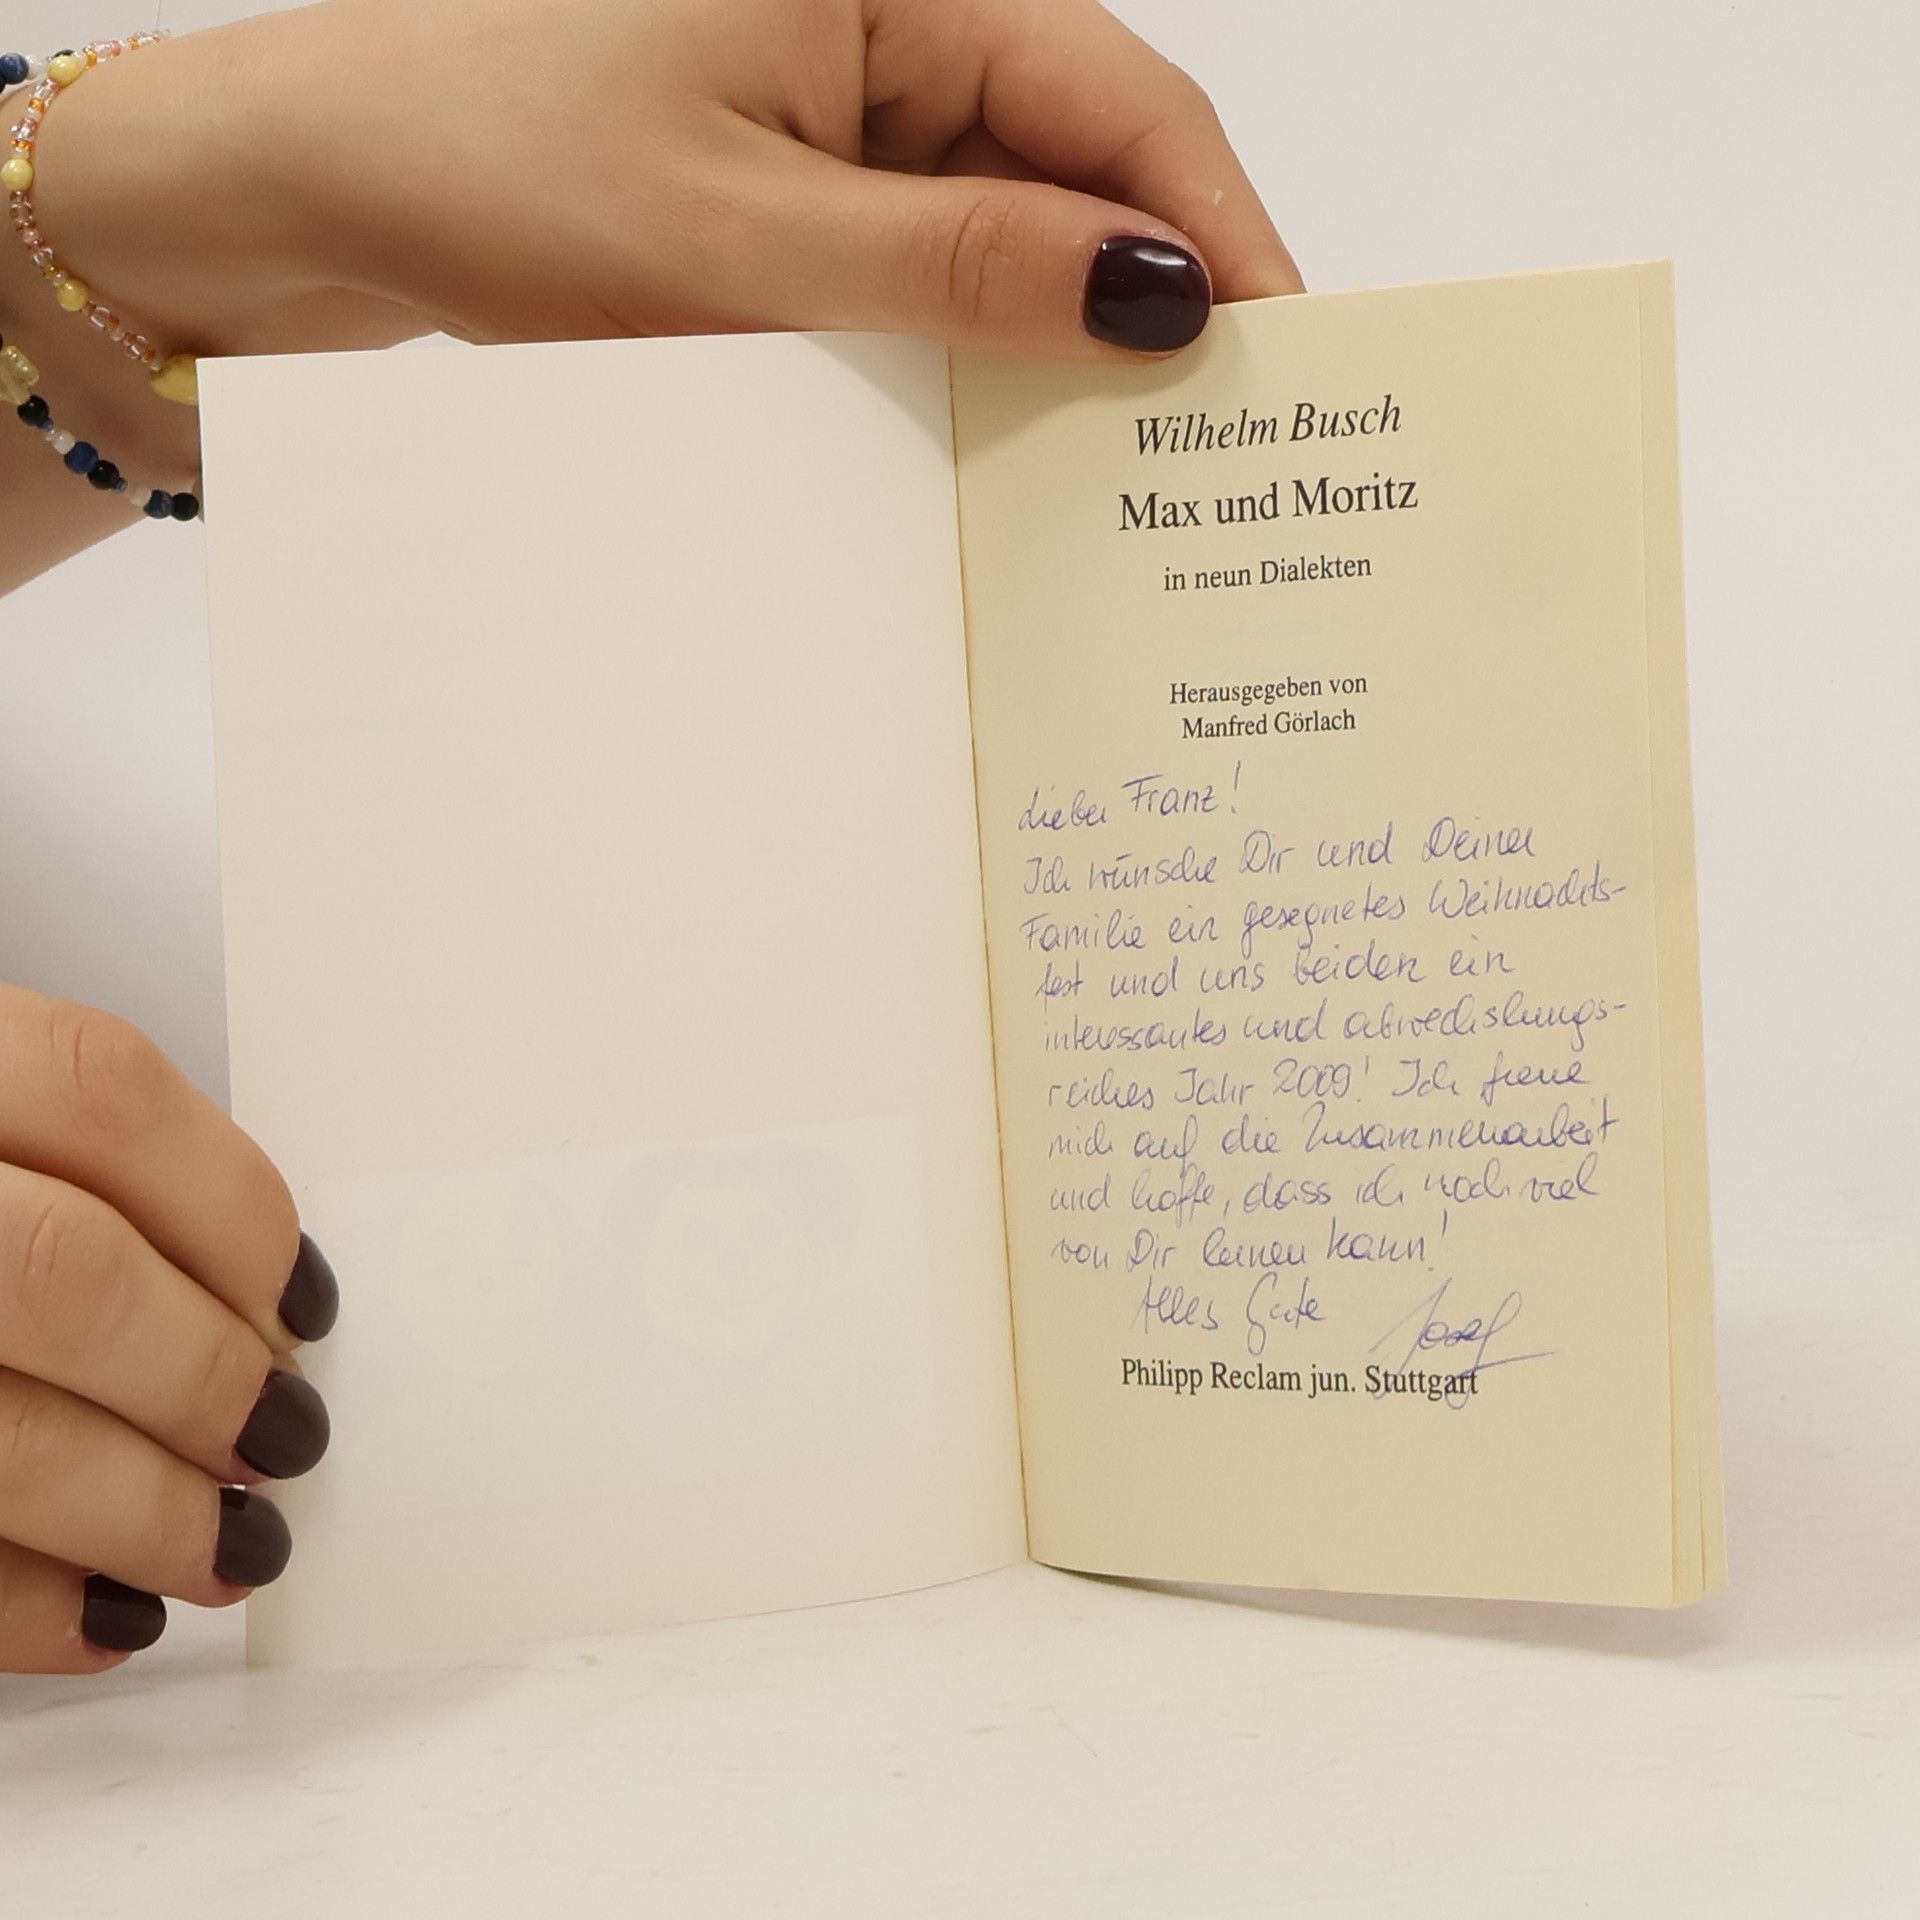 Wilhelm Busch
Max und Moritz
in neun Dialekten
Herausgegeben von
Manfred Görlach
Lieber Franz!
Ich wünsche Dir und Deiner
Familie ein gesegnetes Weihnachts-
fest und uns beiden ein
interessantes und abwechslungs-
reiches Jahr 2009! Ich freue
mich auf die Zusammenarbeit
und hoffe, dass ich noch viel
von Dir lernen kann!
Alles Gute
Josef
Philipp Reclam jun. Stuttgart